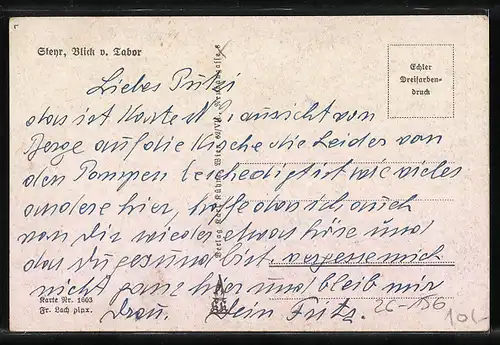 Steyr, Blick v. Tabor
Echter
Dreifarben-
druck
Liebes Putzi
das ist Karte N 2, aussicht vom
Berge auf die Kirche die Leider von
den Pompen beschedigt ist wie vieles
andere hier, hoffe das ich auch
von Dir wieder etwas höre und
das du gesund bist. vergesse mich
nicht ganz hier und bleib mir
Treu. Dein Fritz.
Verlag Karl Kühne, Wien
Karte Nr. 1603
Fr. Lach pinx.
2C-156
10L-